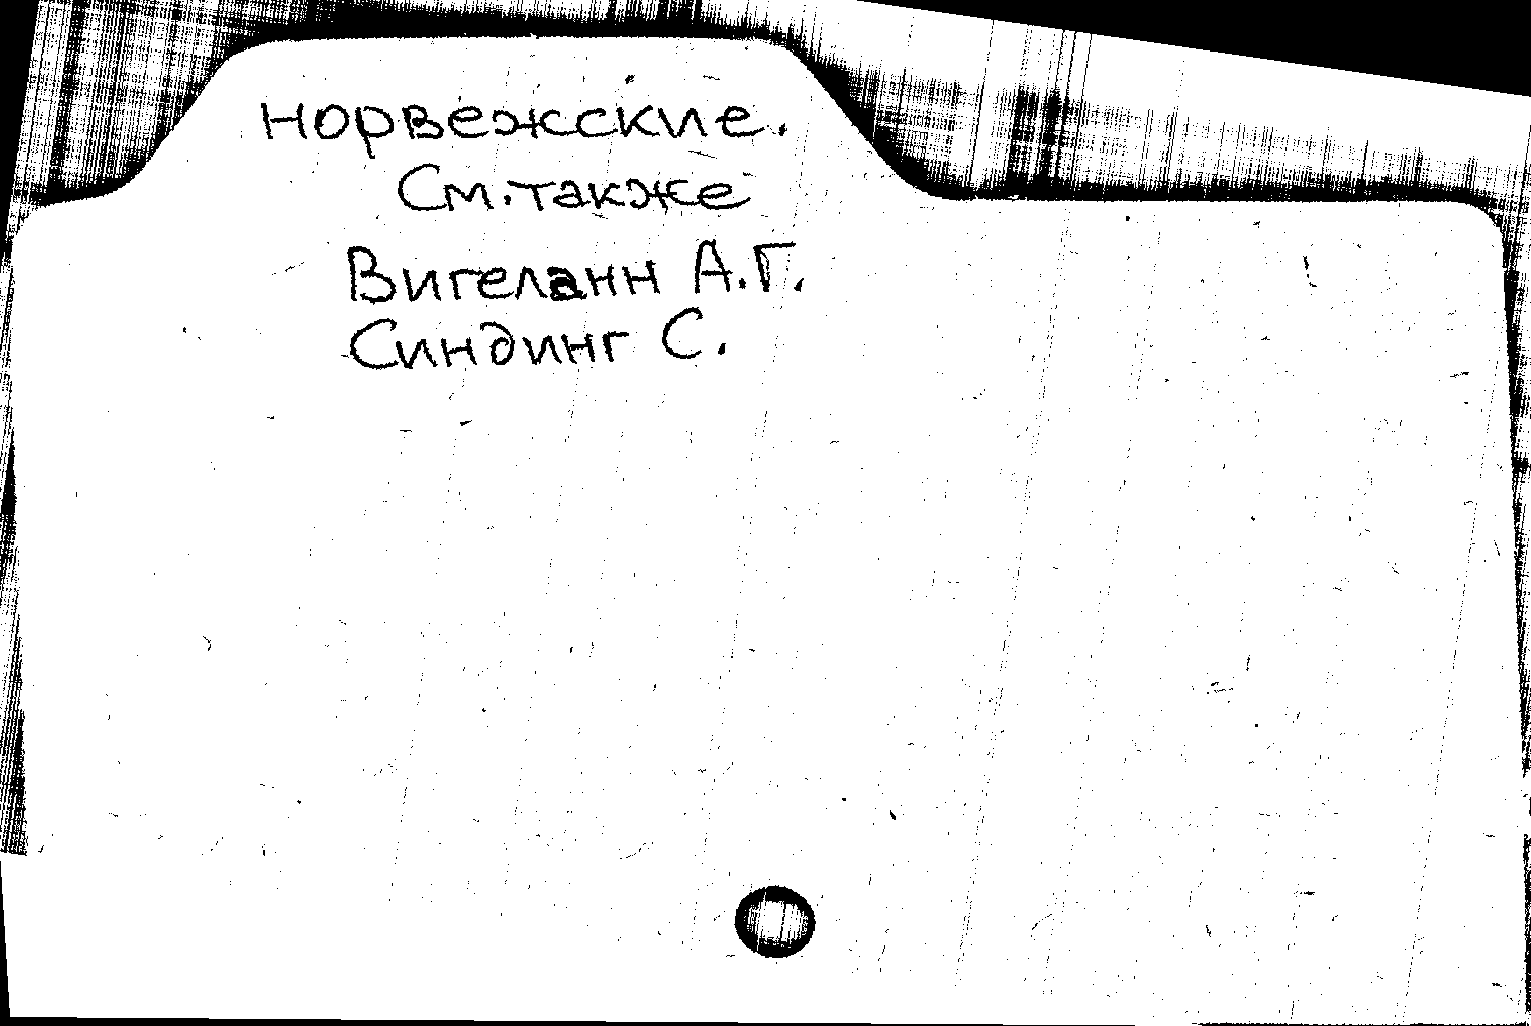 Норвежские.
См. также
Вигеланн А.Г.
Синдинг С.